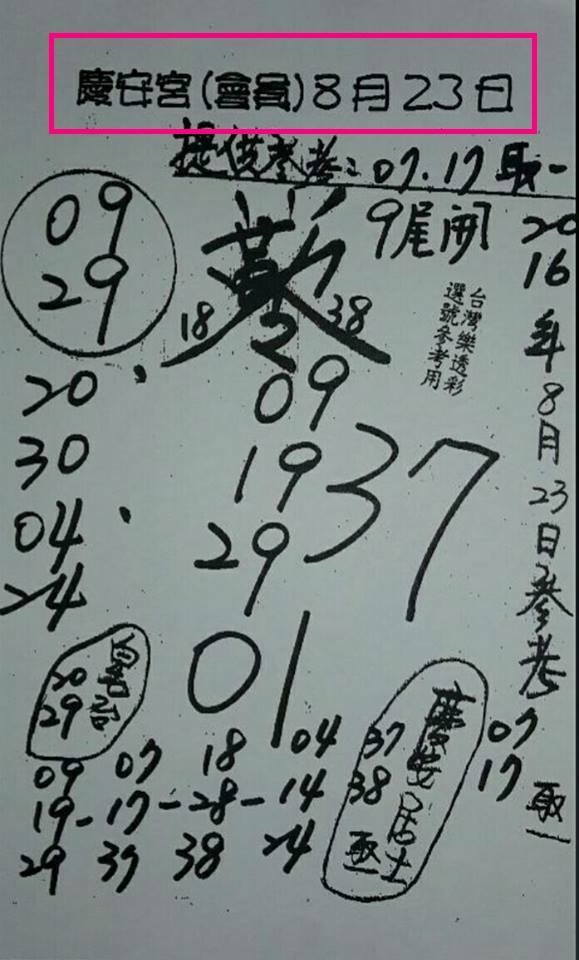 慶安宮(會員)8月23日
提供參考:07.17取一
9尾開
09
29
18
38
台灣樂透彩
選號參考用
2016年8月23日參考
07
17
取一
20
30
04
24
09
19
29
37
01
20
29
09 07 18 04
19-17-28-14
29 37 38 24
慶安居士
37
38
取一